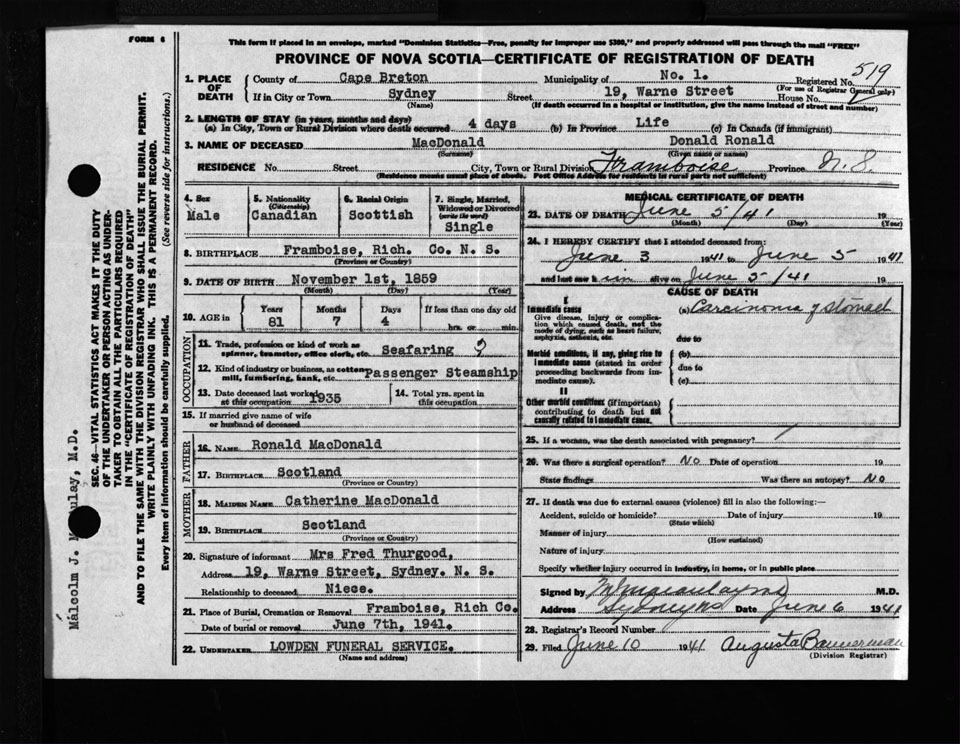 FORM 6
This form if placed in an envelope, marked "Dominion Statistics—Free, penalty for improper use $300," and properly addressed will pass through the mail "FREE"
PROVINCE OF NOVA SCOTIA—CERTIFICATE OF REGISTRATION OF DEATH
519
1. PLACE OF DEATH County of Cape Breton Municipality of No. 1. Registered No.
(For use of Registrar General only)
If in City or Town Sydney Street 19, Warne Street House No.
(Name) (If death occurred in a hospital or institution, give name instead of street and number)
2. LENGTH OF STAY (in years, months and days)
(a) In City, Town or Rural Division where death occurred 4 days (b) In Province Life (c) In Canada (if immigrant)
3. NAME OF DECEASED MacDonald Donald Ronald
(Surname) (Given name or names)
RESIDENCE No. Street City, Town or Rural Division Framboise Province N.S.
(Residence means usual place of abode. Post Office Address for residents in rural parts not sufficient)
4. Sex Male
5. Nationality (Citizenship) Canadian
6. Racial Origin Scottish
7. Single, Married, Widowed or Divorced (write the word) Single
8. BIRTHPLACE Framboise, Rich. Co. N. S.
(Province or Country)
9. DATE OF BIRTH November 1st, 1859
(Month) (Day) (Year)
10. AGE in Years 81 Months 7 Days 4 If less than one day old hrs. or min.
OCCUPATION
11. Trade, profession or kind of work as spinner, teamster, office clerk, etc. Seafaring
12. Kind of industry or business, as cotton mill, lumbering, bank, etc. Passenger Steamship
13. Date deceased last worked at this occupation 1935
14. Total yrs. spent in this occupation
15. If married give name of wife or husband of deceased
FATHER
16. NAME Ronald MacDonald
17. BIRTHPLACE Scotland
(Province or Country)
MOTHER
18. MAIDEN NAME Catherine MacDonald
19. BIRTHPLACE Scotland
(Province or Country)
20. Signature of informant Mrs Fred Thurgood,
Address 19, Warne Street, Sydney. N. S.
Relationship to deceased Niece.
21. Place of Burial, Cremation or Removal Framboise, Rich Co.
Date of burial or removal June 7th, 1941.
22. UNDERTAKER LOWDEN FUNERAL SERVICE.
(Name and address)
MEDICAL CERTIFICATE OF DEATH
23. DATE OF DEATH June 5/41 19
(Month) (Day) (Year)
24. I HEREBY CERTIFY that I attended deceased from:
June 3 1941 to June 5 1941
and last saw him alive on June 5/41 19
CAUSE OF DEATH
I
Immediate cause
Give disease, injury or complication which caused death, not the mode of dying, such as heart failure, asphyxia, asthenia, etc.
(a) Carcinoma of Stomach
due to
Morbid conditions, if any, giving rise to immediate cause (stated in order proceeding backwards from immediate cause).
(b)
due to
(c)
II
Other morbid conditions (if important) contributing to death but not causally related to immediate cause.
25. If a woman, was the death associated with pregnancy?
26. Was there a surgical operation? No Date of operation 19
State findings Was there an autopsy? No
27. If death was due to external causes (violence) fill in also the following:—
Accident, suicide or homicide? Date of injury 19
(State which)
Manner of injury
(How sustained)
Nature of injury
Specify whether injury occurred in industry, in home, or in public place
Signed by M.D.
Address Sydney NS Date June 6 1941
28. Registrar's Record Number
29. Filed June 10 1941 Augusta Bannerman
(Division Registrar)
SEC. 46—VITAL STATISTICS ACT MAKES IT THE DUTY
OF THE UNDERTAKER OR PERSON ACTING AS UNDER-
TAKER TO OBTAIN ALL THE PARTICULARS REQUIRED
IN THE "CERTIFICATE OF REGISTRATION OF DEATH"
AND TO FILE THE SAME WITH THE DIVISION REGISTRAR WHO SHALL ISSUE THE BURIAL PERMIT.
WRITE PLAINLY WITH UNFADING INK. THIS IS A PERMANENT RECORD.
Every item of information should be carefully supplied. (See reverse side for instructions.)
Malcolm J. M.D.